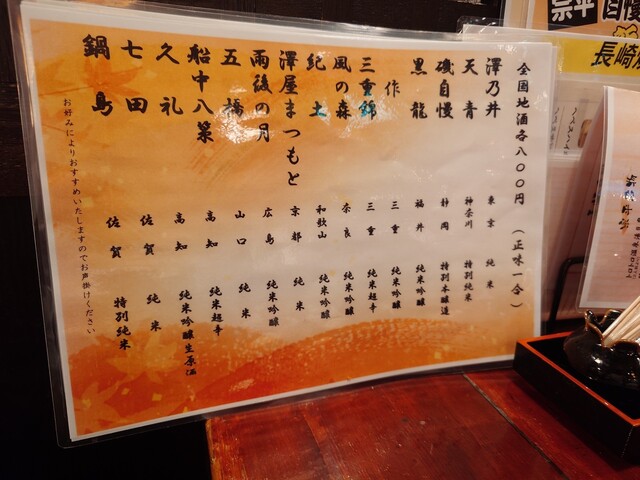 全国地酒各八〇〇円(正味一合)
澤乃井 東京 純米
天青 神奈川 特別純米
磯自慢 静岡 特別本醸造
黒龍 福井 純米吟醸
作 三重 純米吟醸
三重錦 三重 純米超辛
風の森 奈良 純米吟醸
紀土 和歌山 純米吟醸
澤屋まつもと 京都 純米
雨後の月 広島 純米吟醸
五橋 山口 純米
船中八策 高知 純米超辛
久礼 高知 純米吟醸生原酒
七田 佐賀 純米
鍋島 佐賀 特別純米
お好みによりおすすめいたしますのでお声掛けください
宗平 自慢
長崎